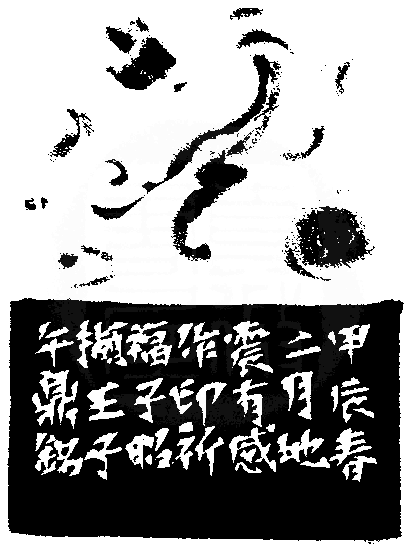 甲辰春
二月地
震有感
作印祈
福子昭
擷王子
午鼎銘